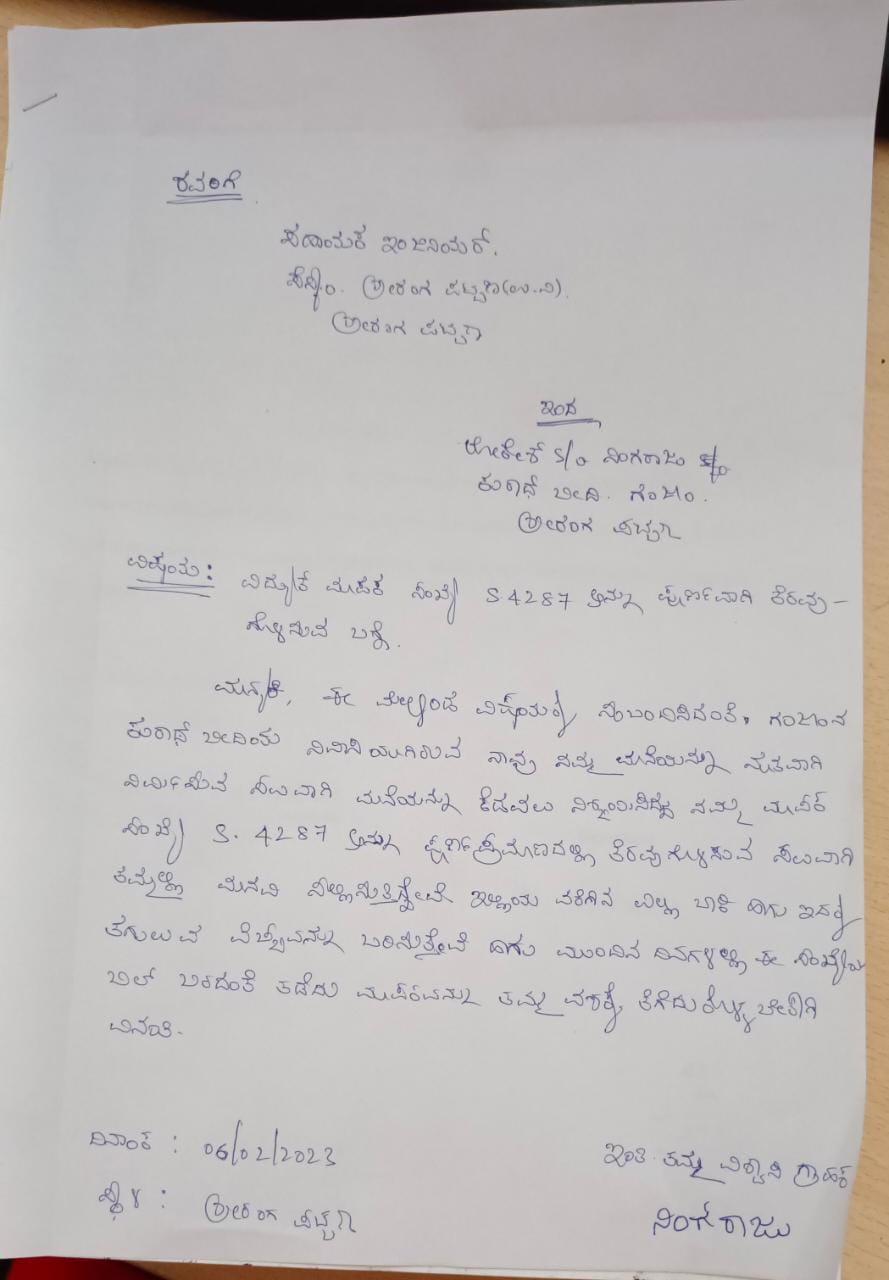 ರವರಿಗೆ
ಸಹಾಯಕ ಇಂಜಿನಿಯರ್.
ಸೆಸ್ಕಾಂ. ಶ್ರೀರಂಗ ಪಟ್ಟಣ(ಉ.ವಿ).
ಶ್ರೀರಂಗ ಪಟ್ಟಣ
ಇಂದ
ಲೋಕೇಶ್ S/o ನಿಂಗರಾಜು
ಬೀದಿ. ಗಂಜಾಂ.
ಶ್ರೀರಂಗ ಪಟ್ಟಣ
ವಿಷಯ: ವಿದ್ಯುತ್ ಮಾಪಕ ಸಂಖ್ಯೆ S.4287 ಅನ್ನು ಪೂರ್ಣವಾಗಿ ತೆರವು-
ಗೊಳಿಸುವ ಬಗ್ಗೆ.
ಮಾನ್ಯರೆ, ಈ ಮೇಲ್ಕಂಡ ವಿಷಯಕ್ಕೆ ಸಂಬಂದಿಸಿದಂತೆ, ಗಂಜಾಂನ
ಬೀದಿಯ ನಿವಾಸಿಯಾಗಿರುವ ನಾವು ನಮ್ಮ ಮನೆಯನ್ನು ನೂತನವಾಗಿ
ನಿರ್ಮಿಸುವ ಸಲುವಾಗಿ ಮನೆಯನ್ನು ಕೆಡವಲು ನಿಶ್ಚಯಿಸಿದ್ದು ನಮ್ಮ ಮೀಟರ್
ಸಂಖ್ಯೆ S. 4287 ಅನ್ನು ಪೂರ್ಣಪ್ರಮಾಣದಲ್ಲಿ ತೆರವುಗೊಳಿಸುವ ಸಲುವಾಗಿ
ತಮ್ಮಲ್ಲಿ ಮನವಿ ಸಲ್ಲಿಸುತ್ತಿದ್ದೇವೆ ಇಲ್ಲಿಯ ವರೆಗಿನ ಎಲ್ಲಾ ಬಾಕಿ ಹಾಗು ಇದಕ್ಕೆ
ತಗುಲುವ ವೆಚ್ಚವನ್ನು ಬರಿಸುತ್ತೇವೆ ಹಾಗು ಮುಂದಿನ ದಿನಗಳಲ್ಲಿ ಈ ಸಂಖ್ಯೆಯ
ಬಿಲ್ ಬರದಂತೆ ತಡೆದು ಮೀಟರನ್ನು ತಮ್ಮ ವಶಕ್ಕೆ ತೆಗೆದುಕೊಳ್ಳಬೇಕಾಗಿ
ವಿನಂತಿ.
ದಿನಾಂಕ : 06/02/2023
ಸ್ಥಳ : ಶ್ರೀರಂಗ ಪಟ್ಟಣ
ಇಂತಿ ತಮ್ಮ ವಿಶ್ವಾಸಿ ಗ್ರಾಹಕ
ನಿಂಗರಾಜು